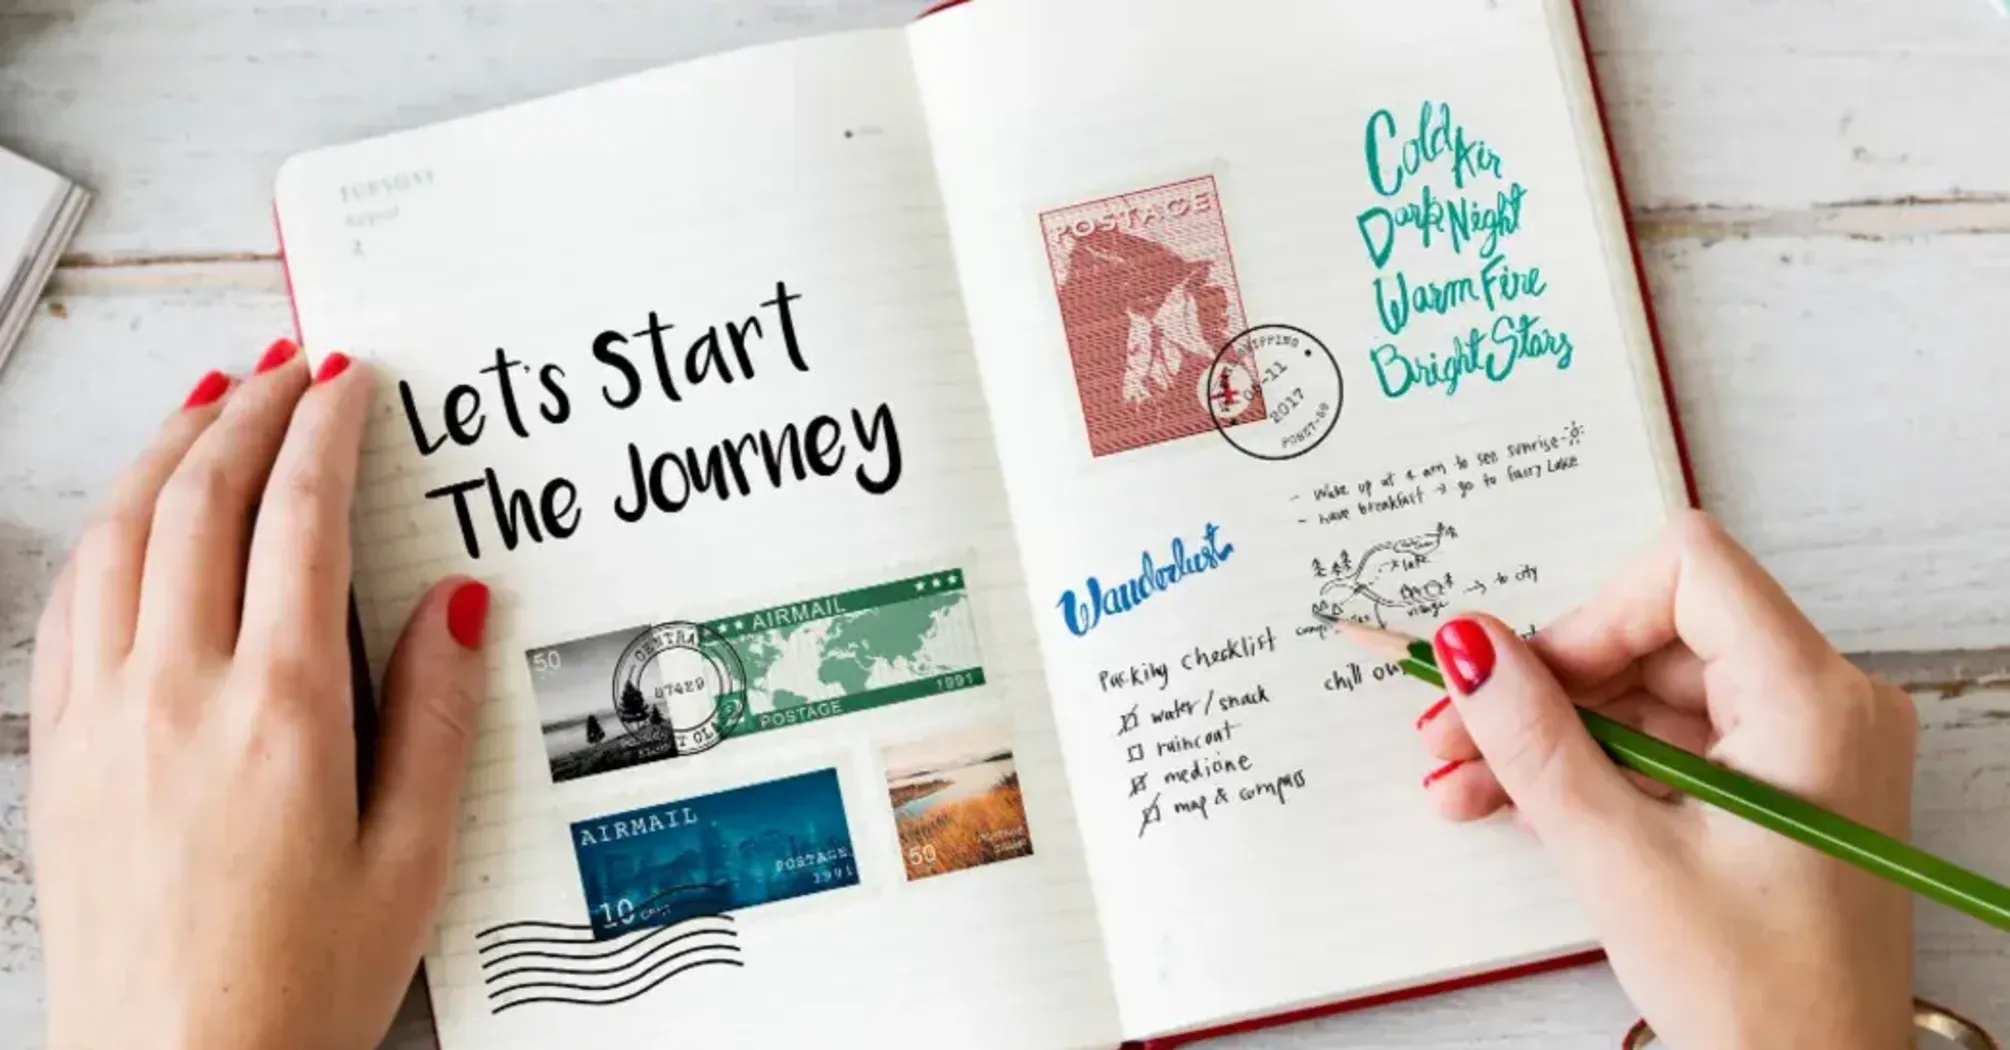 TUESDAY
August
Let's Start
The Journey
50
CENTRA
87429
AIRMAIL
POSTAGE
1991
AIRMAIL
POSTAGE
1991
10 CENT
50
POSTAGE
2017
Cold Air
Dark Night
Warm Fire
Bright Stars
- Wake up at 4 am to see sunrise
- have breakfast → go to Fairy Lake
→ lake
village
→ to city
chill out
Wanderlust
Packing checklist
water/snack
raincoat
medicine
map & compass